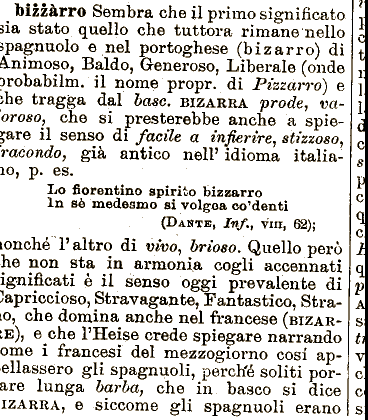 bizzàrro Sembra che il primo significato
sia stato quello che tuttora rimane nello
spagnuolo e nel portoghese (bizarro) di
Animoso, Baldo, Generoso, Liberale (onde
probabilm. il nome propr. di Pizzarro) e
che tragga dal basc. BIZARRA prode, va-
loroso, che si presterebbe anche a spie-
gare il senso di facile a infierire, stizzoso,
iracondo, già antico nell' idioma italia-
no, p. es.
Lo fiorentino spirito bizzarro
In sè medesmo si volgea co'denti
(DANTE, Inf., VIII, 62);
nonché l'altro di vivo, brioso. Quello però
che non sta in armonia cogli accennati
significati è il senso oggi prevalente di
Capriccioso, Stravagante, Fantastico, Stra-
no, che domina anche nel francese (BIZAR-
RE), e che l'Heise crede spiegare narrando
come i francesi del mezzogiorno così ap-
pellassero gli spagnuoli, perché soliti por-
tare lunga barba, che in basco si dice
BIZARRA, e siccome gli spagnuoli erano